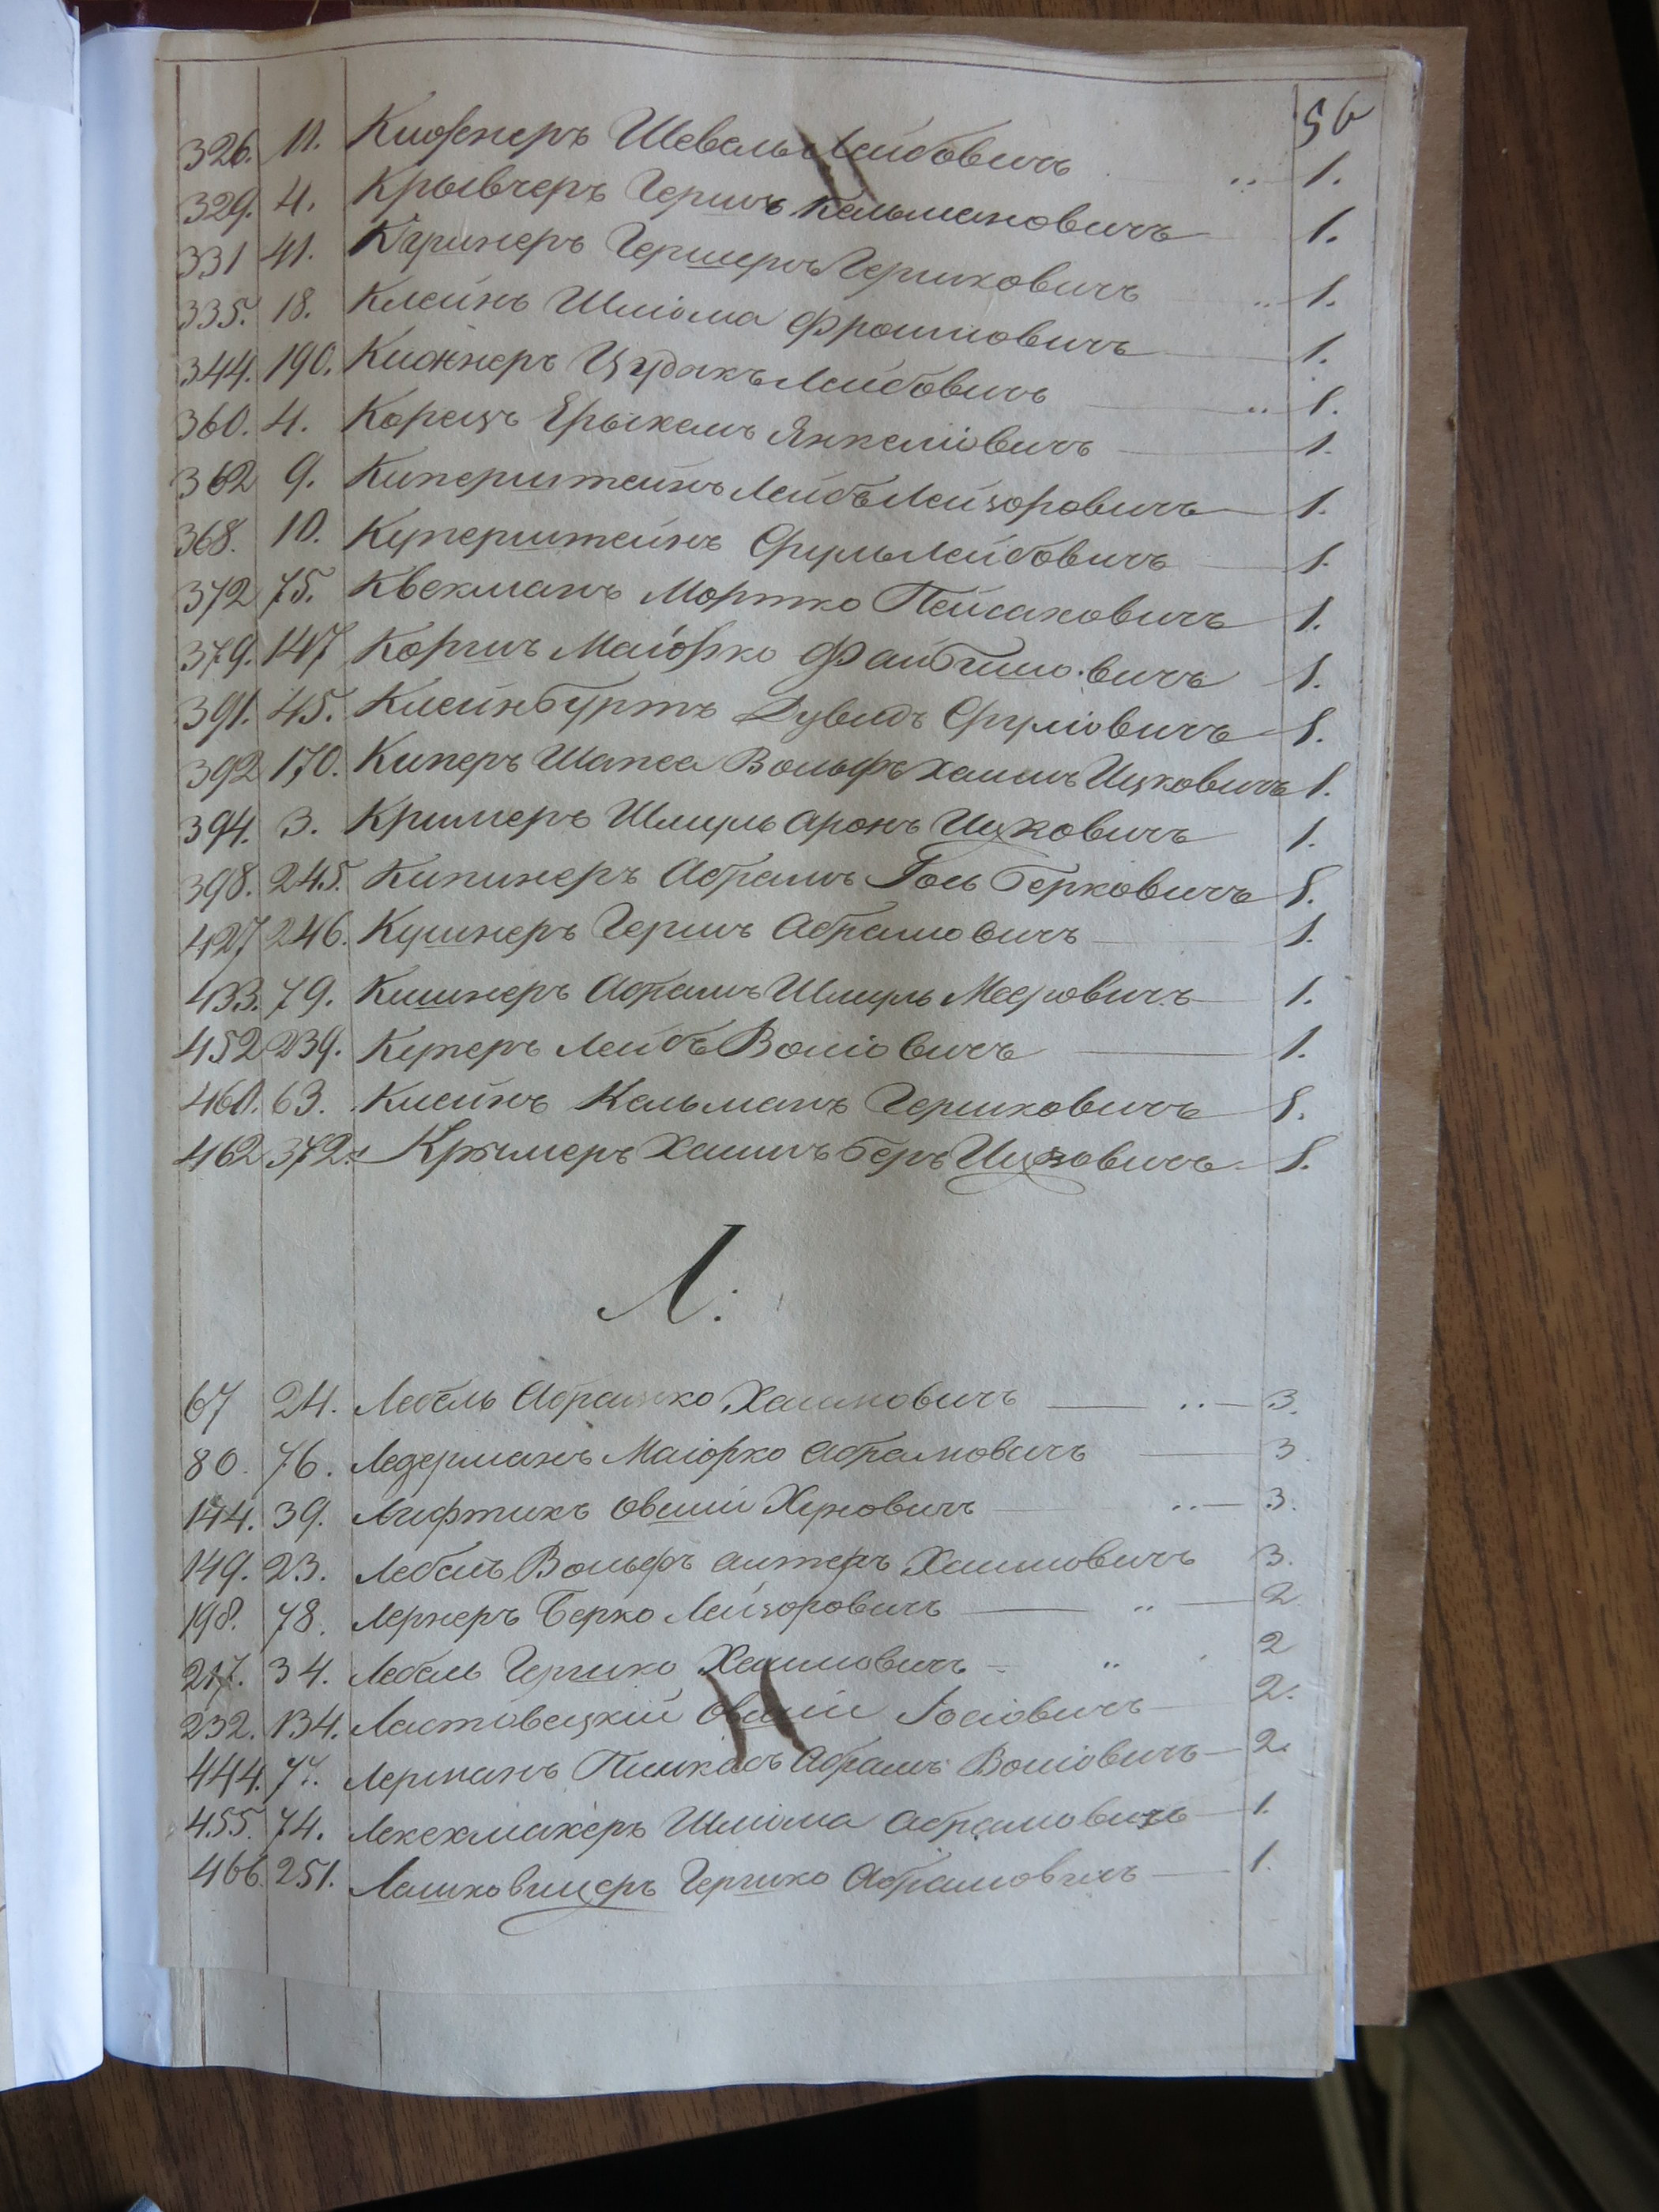 56
326. 11. Киржнеръ Шевель Лейбовичъ 1.
329. 4. Крывчеръ Гершъ Кельмановичъ 1.
331 41. Гершковичъ 1.
335. 18. Клейнъ Шліома Фроимовичъ 1.
344. 190. Кижнеръ Лейбовичъ 1.
360. 4. Корецъ Янкеліовичъ 1.
362 9. Киперштейнъ Лейбъ Лейзоровичъ 1.
368. 10. Куперштейнъ Сруль Лейбовичъ 1.
372 75. Квекманъ Мортко Пейсаховичъ 1.
379. 147 Маіорко 1.
391. 45. Клейнбуртъ Дувидъ Сруліовичъ 1.
392 170. Киперъ Шапса Вольфъ Хаимъ Ицковичъ 1.
394. 3. Кримеръ Шмуль Аронъ Ицковичъ 1.
398. 245. Абрамъ Іось Берковичъ 1.
427 246. Кушнеръ Гершъ Абрамовичъ 1.
433. 79. Кишнеръ Абрамъ Шмуль Мееровичъ 1.
452 239. Куперъ Лейбъ Воліовичъ 1.
460. 63. Клейнъ Кельманъ Гершковичъ 1.
462 372. Хаимъ Беръ Ицковичъ 1.
Л:
67 24. Лебель Абрамко Хаимовичъ 3.
80. 76. Ледерманъ Маіорко Абрамовичъ 3
144. 39. Лифтикъ Овшій 3.
149. 23. Лебель Вольфъ Алтеръ Хаимовичъ 3.
198. 78. Лернеръ Берко Лейзоровичъ 2
217. 34. Лебель Гершко Хаимовичъ 2
232. 134. Ластовецкій Овшій Іосіовичъ 2.
444. 77. Лерманъ Пинкасъ Абрамъ Воліовичъ 2.
455. 74. Лекехмахеръ Шліома Абрамовичъ 1.
466. 251. Лашковицеръ Гершко Абрамовичъ 1.